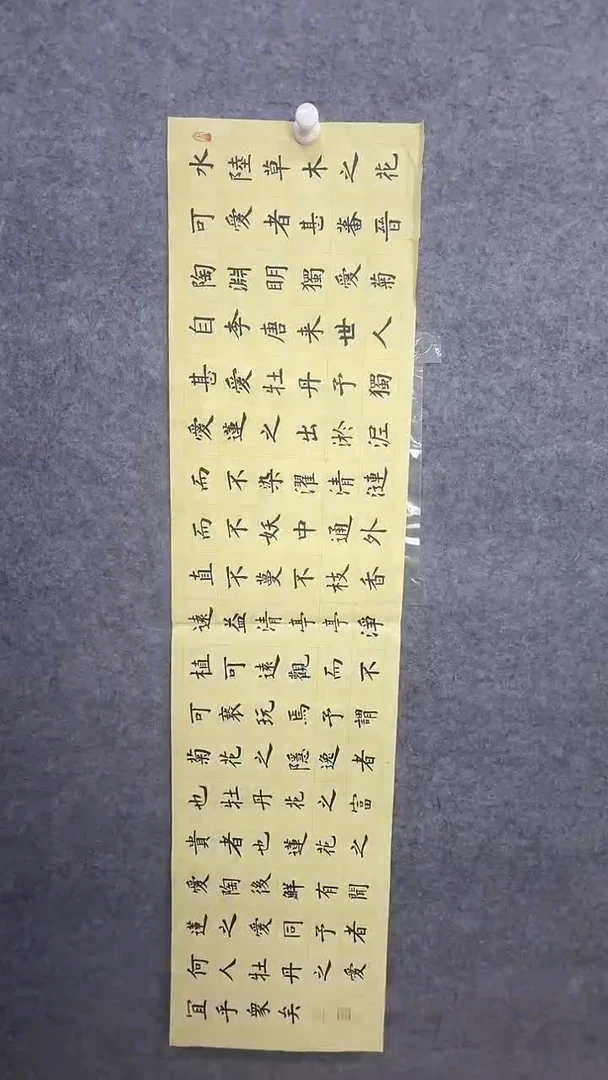 水陸草木之花
可愛者甚蕃晉
陶淵明獨愛菊
自李唐来世人
甚愛牡丹予獨
愛蓮之出淤泥
而不染濯清漣
而不妖中通外
直不蔓不枝香
遠益清亭亭淨
植可遠觀而不
可褻玩焉予謂
菊花之隱逸者
也牡丹花之富
貴者也蓮花之
愛陶後鮮有聞
蓮之愛同予者
何人牡丹之愛
宜乎衆矣